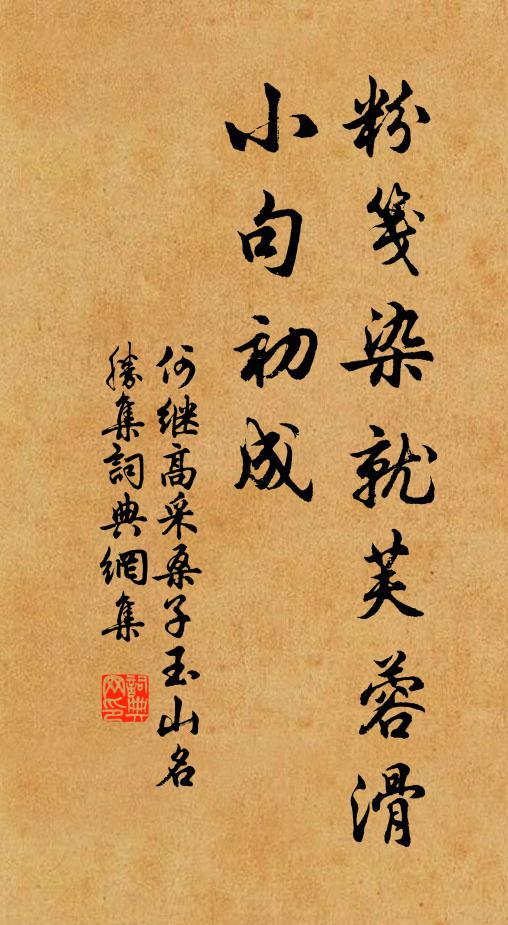 粉箋染就芙蓉滑
小句初成
何继高采桑子玉山名
勝集詞典網集
詞典
网印